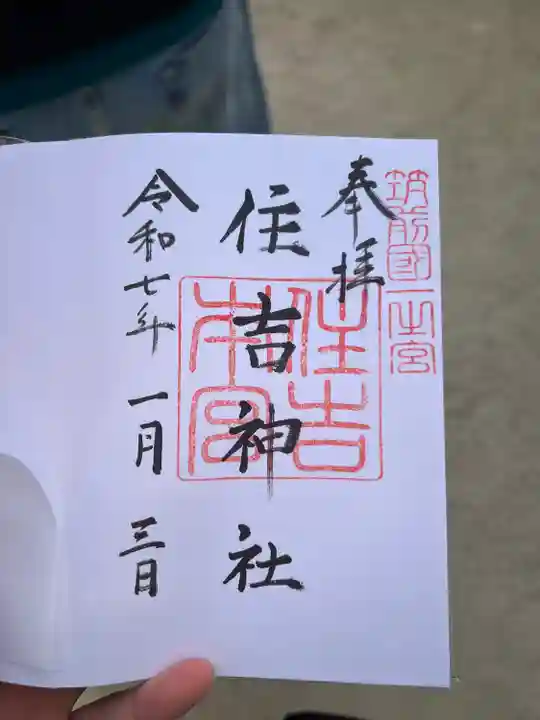 筑前國一之宮
奉拝
住吉神社
住吉本宮
令和七年一月三日